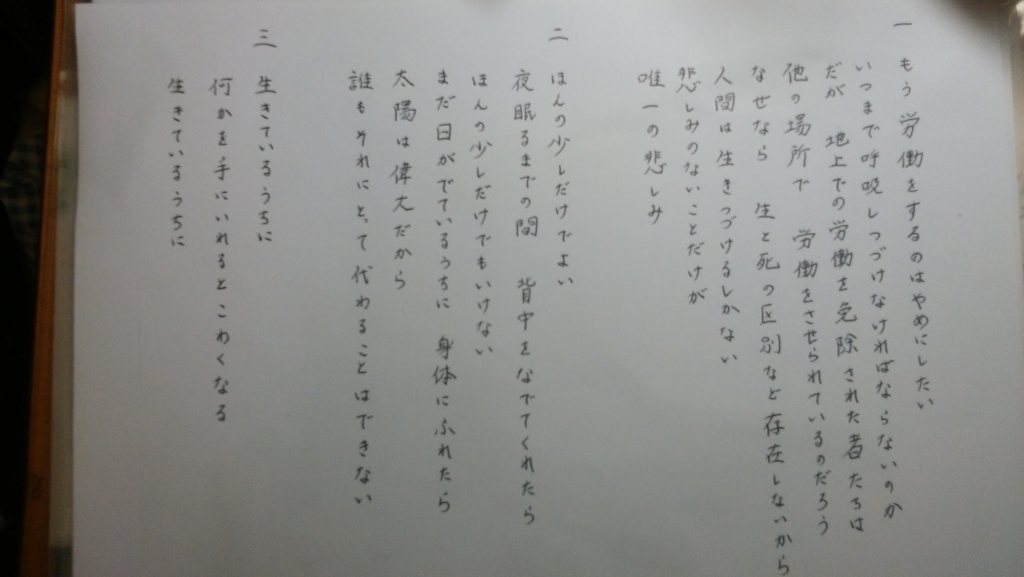 一 もう 労働をするのはやめにしたい
いつまで呼吸しつづけなければならないのか
だが 地上での労働を免除された者たちは
他の場所で 労働をさせられているのだろう
なぜなら 生と死の区別など存在しないから
人間は生きつづけるしかない
悲しみのないことだけが
唯一の悲しみ
二 ほんの少しだけでよい
夜眠るまでの間 背中をなでてくれたら
ほんの少しだけでもいけない
まだ日がでているうちに 身体にふれたら
太陽は偉大だから
誰もそれにとって代わることはできない
三 生きているうちに
何かを手にいれるとこわくなる
生きているうちに